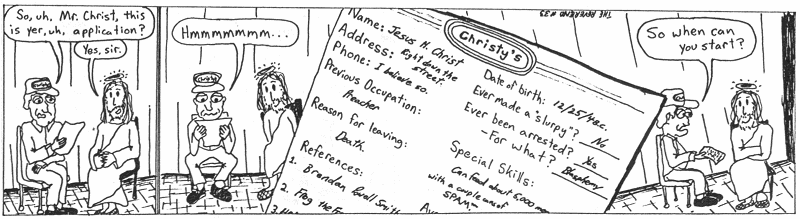 So, uh, Mr. Christ, this
is yer, uh, application?
Yes, sir.
Hmmmmmmm...
Christy's
Name: Jesus H. Christ
Address: Right down the
street.
Phone: I believe so.
Previous Occupation:
Preacher
Reason for leaving:
Death.
References:
1. Brendan Powell Smith
2. Frog the
Date of birth: 12/25/4BC.
Ever made a "slurpy"? No
Ever been arrested? Yes
- For what? Blasphemy
Special Skills:
Can feed about 5,000 men
with a couple cans of
SPAM.
THE REVEREND #33
So when can
you start?